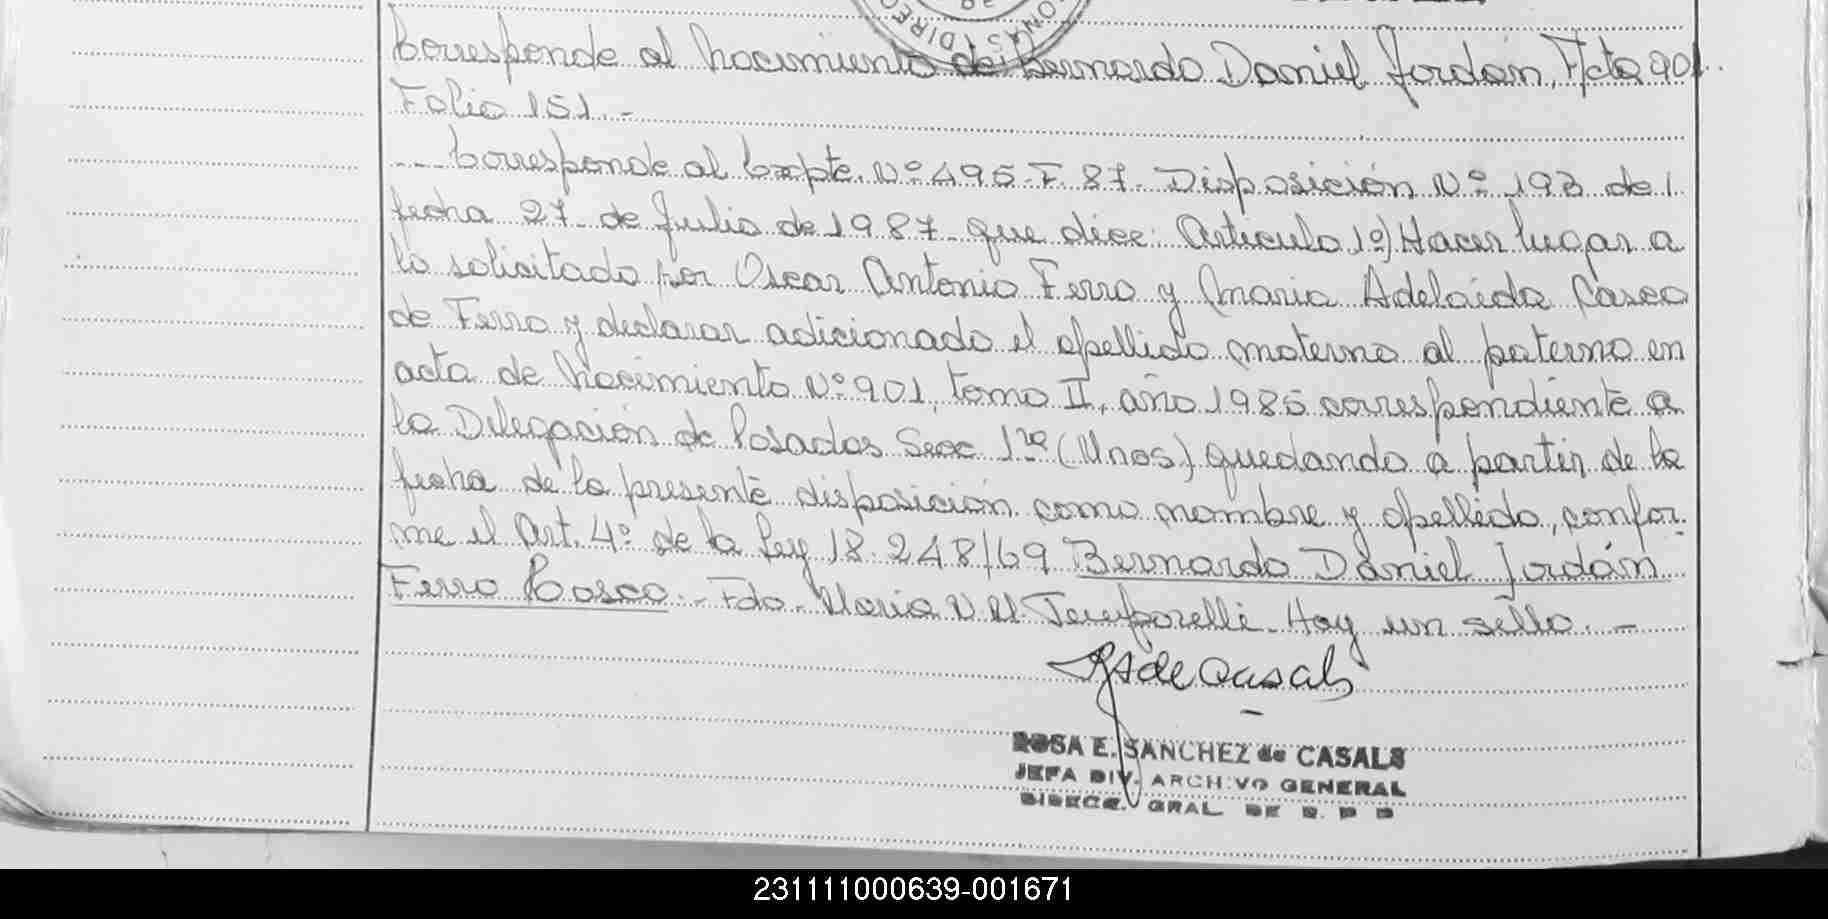 Corresponde al Nacimiento de Bernardo Daniel Jordán, Acta 901
Folio 151.-
Corresponde al Expte. Nº 495-F-87. Disposición Nº 193 de
fecha 27 de Julio de 1987 que dice: Artículo 1º) Hacer lugar a
lo solicitado por Oscar Antonio Ferro y Maria Adelaida Casco
de Ferro y declarar adicionado el apellido materno al paterno en
acta de Nacimiento Nº 901, tomo II, año 1985 correspondiente a
la Delegación de Posadas Secc 1ra (Unos) quedando a partir de la
fecha de la presente disposición como nombre y apellido, confor-
me el Art. 4º de la Ley 18.248/69 Bernardo Daniel Jordán
Ferro Casco.- Fdo. Maria Temporelli. Hay un sello.-
de Casals
ROSA E. SANCHEZ de CASALS
JEFA DIV. ARCHIVO GENERAL
DIRECC. GRAL. DE R. P. P
231111000639-001671